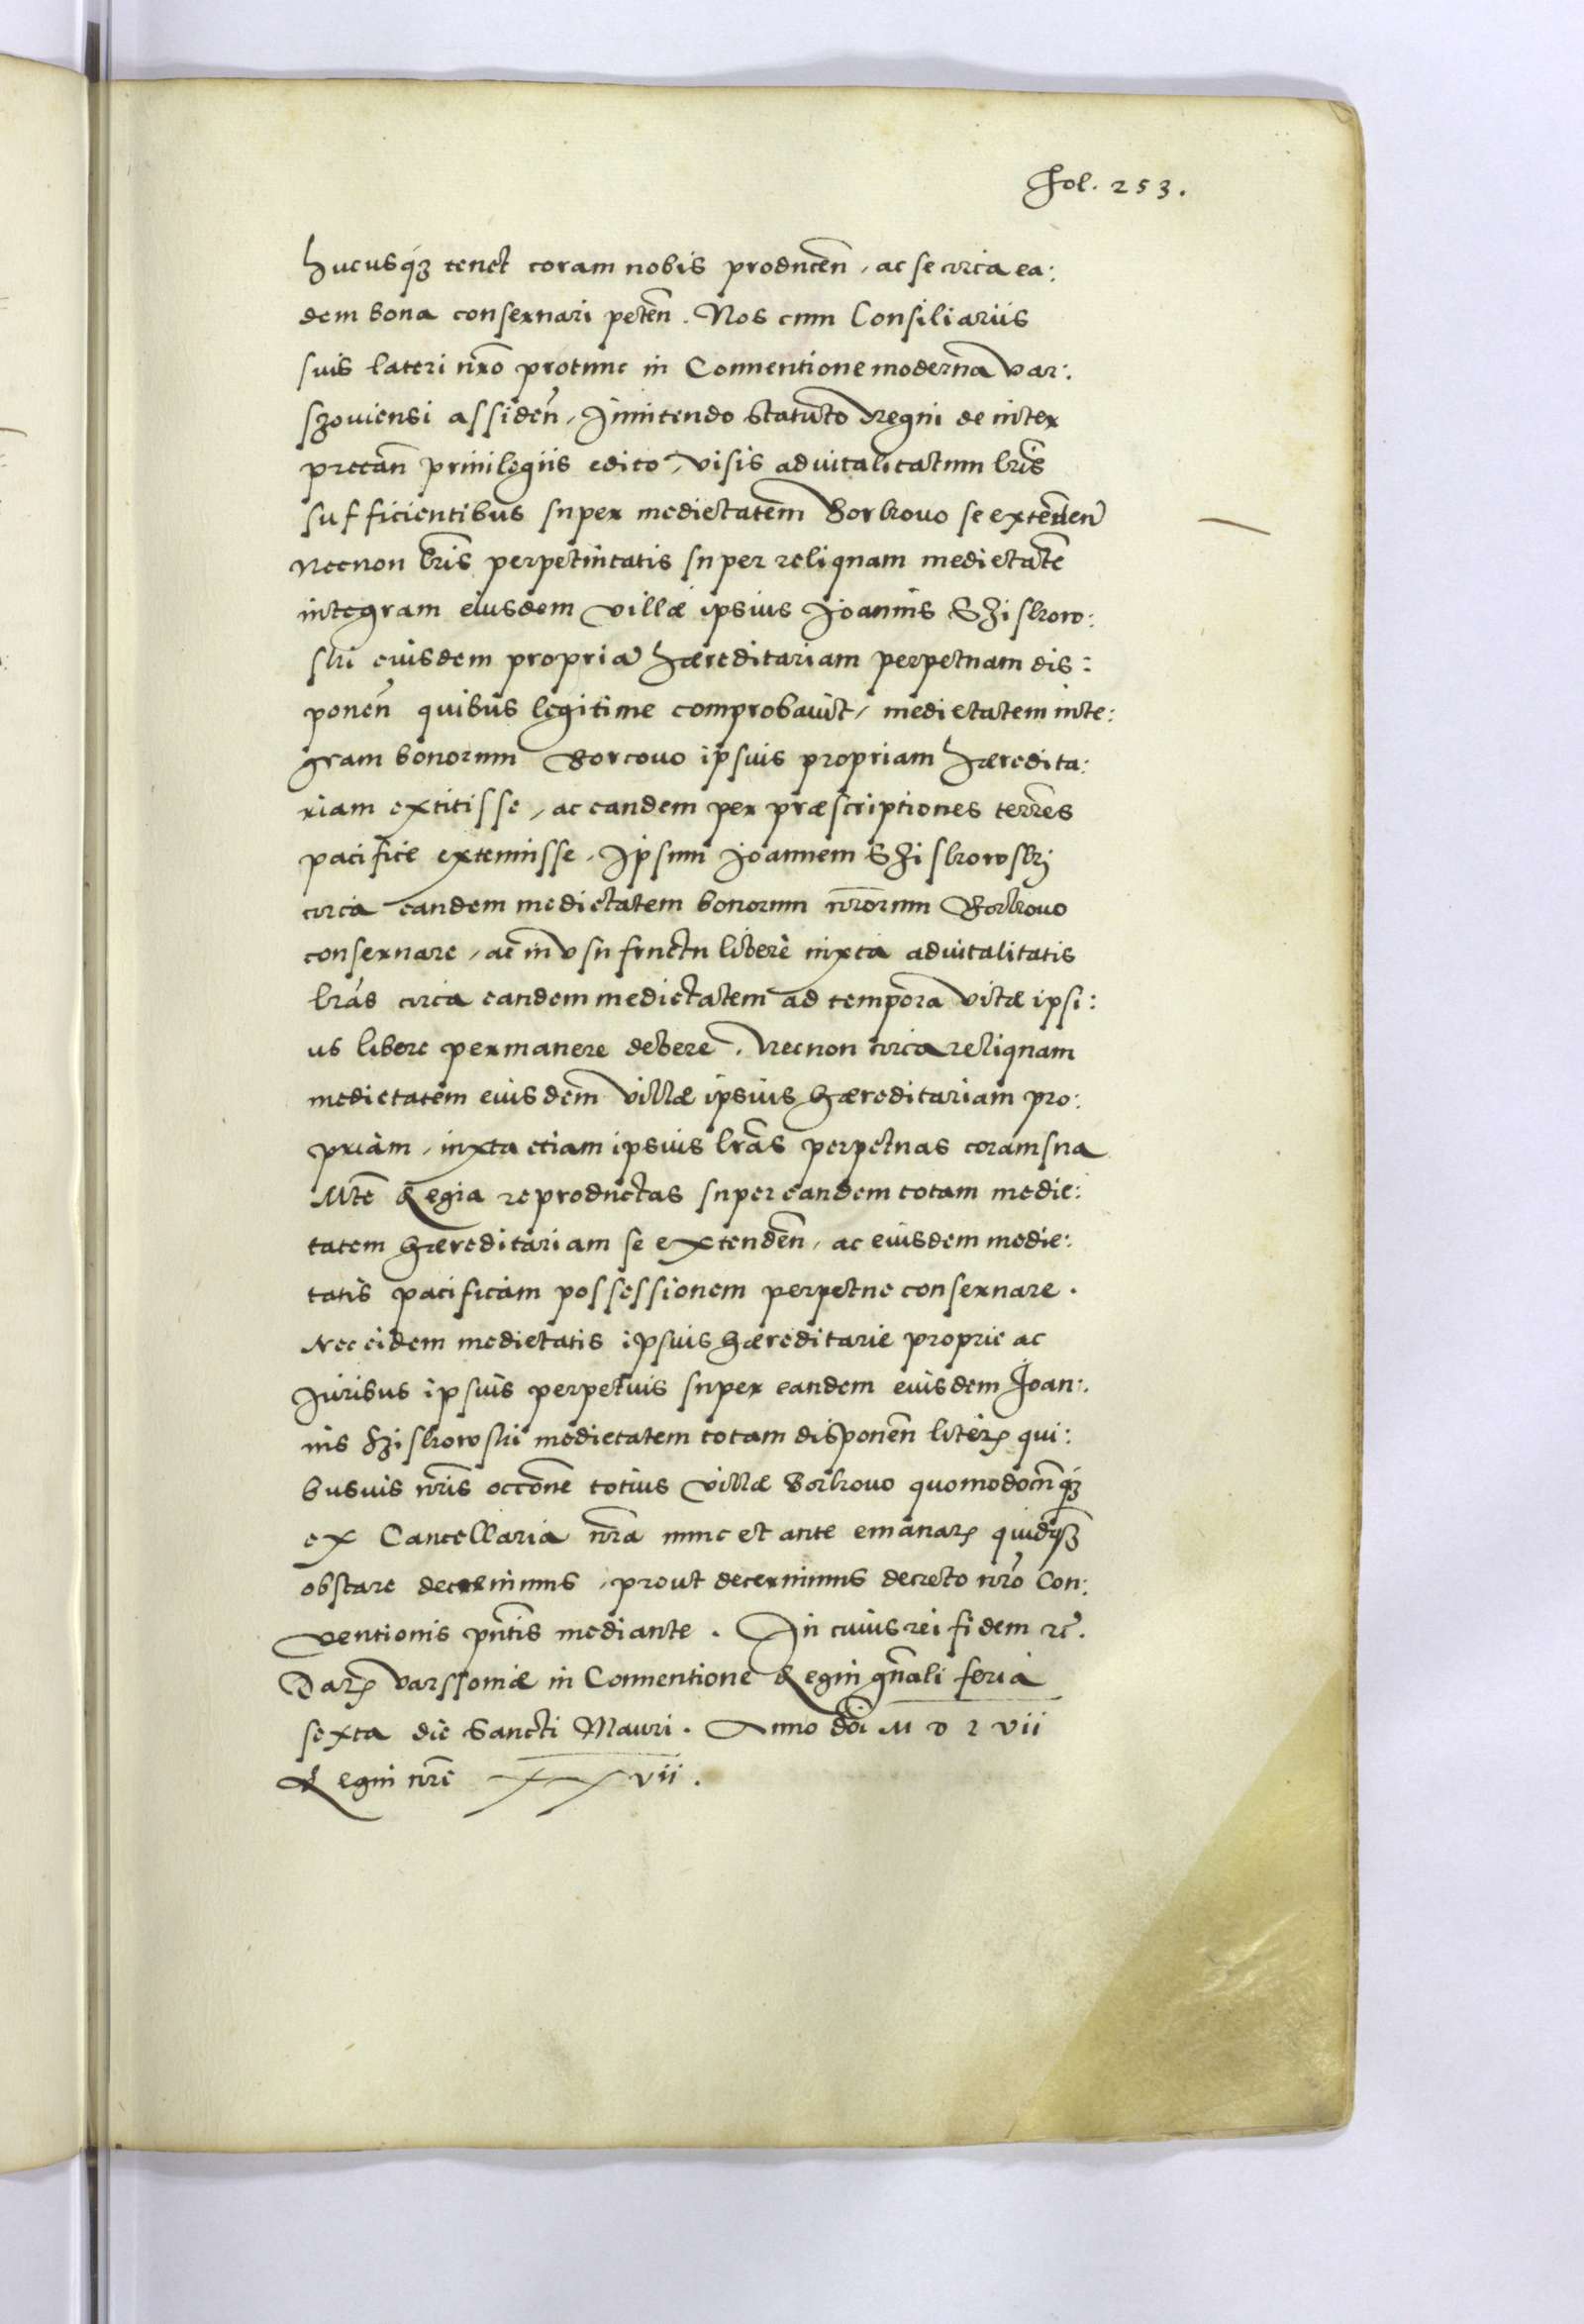 Fol. 253.
hucusq3 tenet coram nobis producen̄, ac se circa ea:
dem bona conseruari peten̄. Nos cum Consiliariis
suis lateri nr̄o protunc in Conuentione moderna Var:
szouiensi assiden̄, Innitendo Statuto Regni de inter
pretan̄ priuilegiis edito, visis aduitalitatum lr̄is
sufficientibus super medietatem Borkouo se extenden̄
Necnon lr̄is perpetuitatis super reliquam medietate̅
integram eiusdem villæ ipsius Joannis Sziskow:
ski eiusdem propria̅ hæreditariam perpetuam dis:
ponen̄ quibus legitime comprobauit, medietatem inte:
gram bonorum Borcouo ipsius propriam hæredita:
riam extitisse, ac eandem per præscriptiones terr̄es
pacifice extenuisse, Ipsum Joannem Sziskowskj
circa eandem medietatem bonorum nr̄orum Borkouo
conseruare, ac in vsufructu libere iuxta aduitalitatis
lr̄as circa eandem medietatem ad tempora vitæ ipsi:
us libere permanere debere. Necnon circa reliquam
medietatem eiusdem villæ ipsius hæreditariam pro:
priam, iuxta etiam ipsius lr̄as perpetuas coram sua
Mte̅ Regia reproductas super eandem totam medie:
tatem hæreditariam se extenden̄, ac eiusdem medie:
tatis pacificam possessionem perpetue conseruare.
Nec eidem medietatis ipsius hæreditarie proprie ac
Juribus ipsius perpetuis super eandem eiusdem Joan:
nis Sziskowski medietatem totam disponen̄ literꝭ qui:
busuis nr̄is occ̄one totius villæ Borkouo quomodocu̅q3
ex Cancellaria nr̄a nunc et ante emanatꝭ quidq3
obstare decreuimus, prout decernimus decreto nr̄o Con:
ventionis pn̄tis mediante. In cuius rei fidem ꝛc̄.
Datꝭ Varssouiæ in Conuentione Regni gn̄ali feria
sexta die Sancti Mauri. Anno dn̄i M D L vii
Regni nr̄i XXvii.